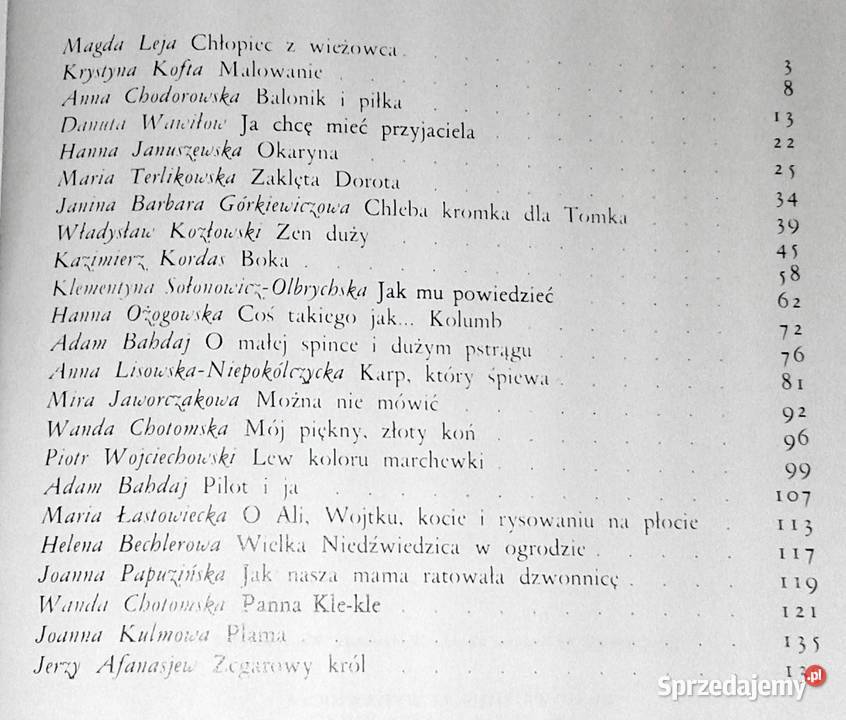 Magda Leja Chłopiec z wieżowca . . . . . . . 3
Krystyna Kofta Malowanie . . . . . . . . . 8
Anna Chodorowska Balonik i piłka . . . . . . . 13
Danuta Wawiłow Ja chcę mieć przyjaciela . . . . . 22
Hanna Januszewska Okaryna . . . . . . . . 25
Maria Terlikowska Zaklęta Dorota . . . . . . . 34
Janina Barbara Górkiewiczowa Chleba kromka dla Tomka . . 39
Władysław Kozłowski Zen duży . . . . . . . 45
Kazimierz Kordas Boka . . . . . . . . . 58
Klementyna Sołonowicz-Olbrychska Jak mu powiedzieć . . . 62
Hanna Ożogowska Coś takiego jak... Kolumb . . . . . 72
Adam Bahdaj O małej spince i dużym pstrągu . . . . 76
Anna Lisowska-Niepokólczycka Karp, który śpiewa . . . . 81
Mira Jaworczakowa Można nie mówić . . . . . . 92
Wanda Chotomska Mój piękny, złoty koń . . . . . 96
Piotr Wojciechowski Lew koloru marchewki . . . . . 99
Adam Bahdaj Pilot i ja . . . . . . . . . 107
Maria Łastowiecka O Ali, Wojtku, kocie i rysowaniu na płocie . 113
Helena Bechlerowa Wielka Niedźwiedzica w ogrodzie . . . . 117
Joanna Papuzińska Jak nasza mama ratowała dzwonnicę . . . 119
Wanda Chotomska Panna Kle-kle . . . . . . . 121
Joanna Kulmowa Plama . . . . . . . . . 135
Jerzy Afanasjew Zegarowy król . . . . . . .
Sprzedajemy.pl